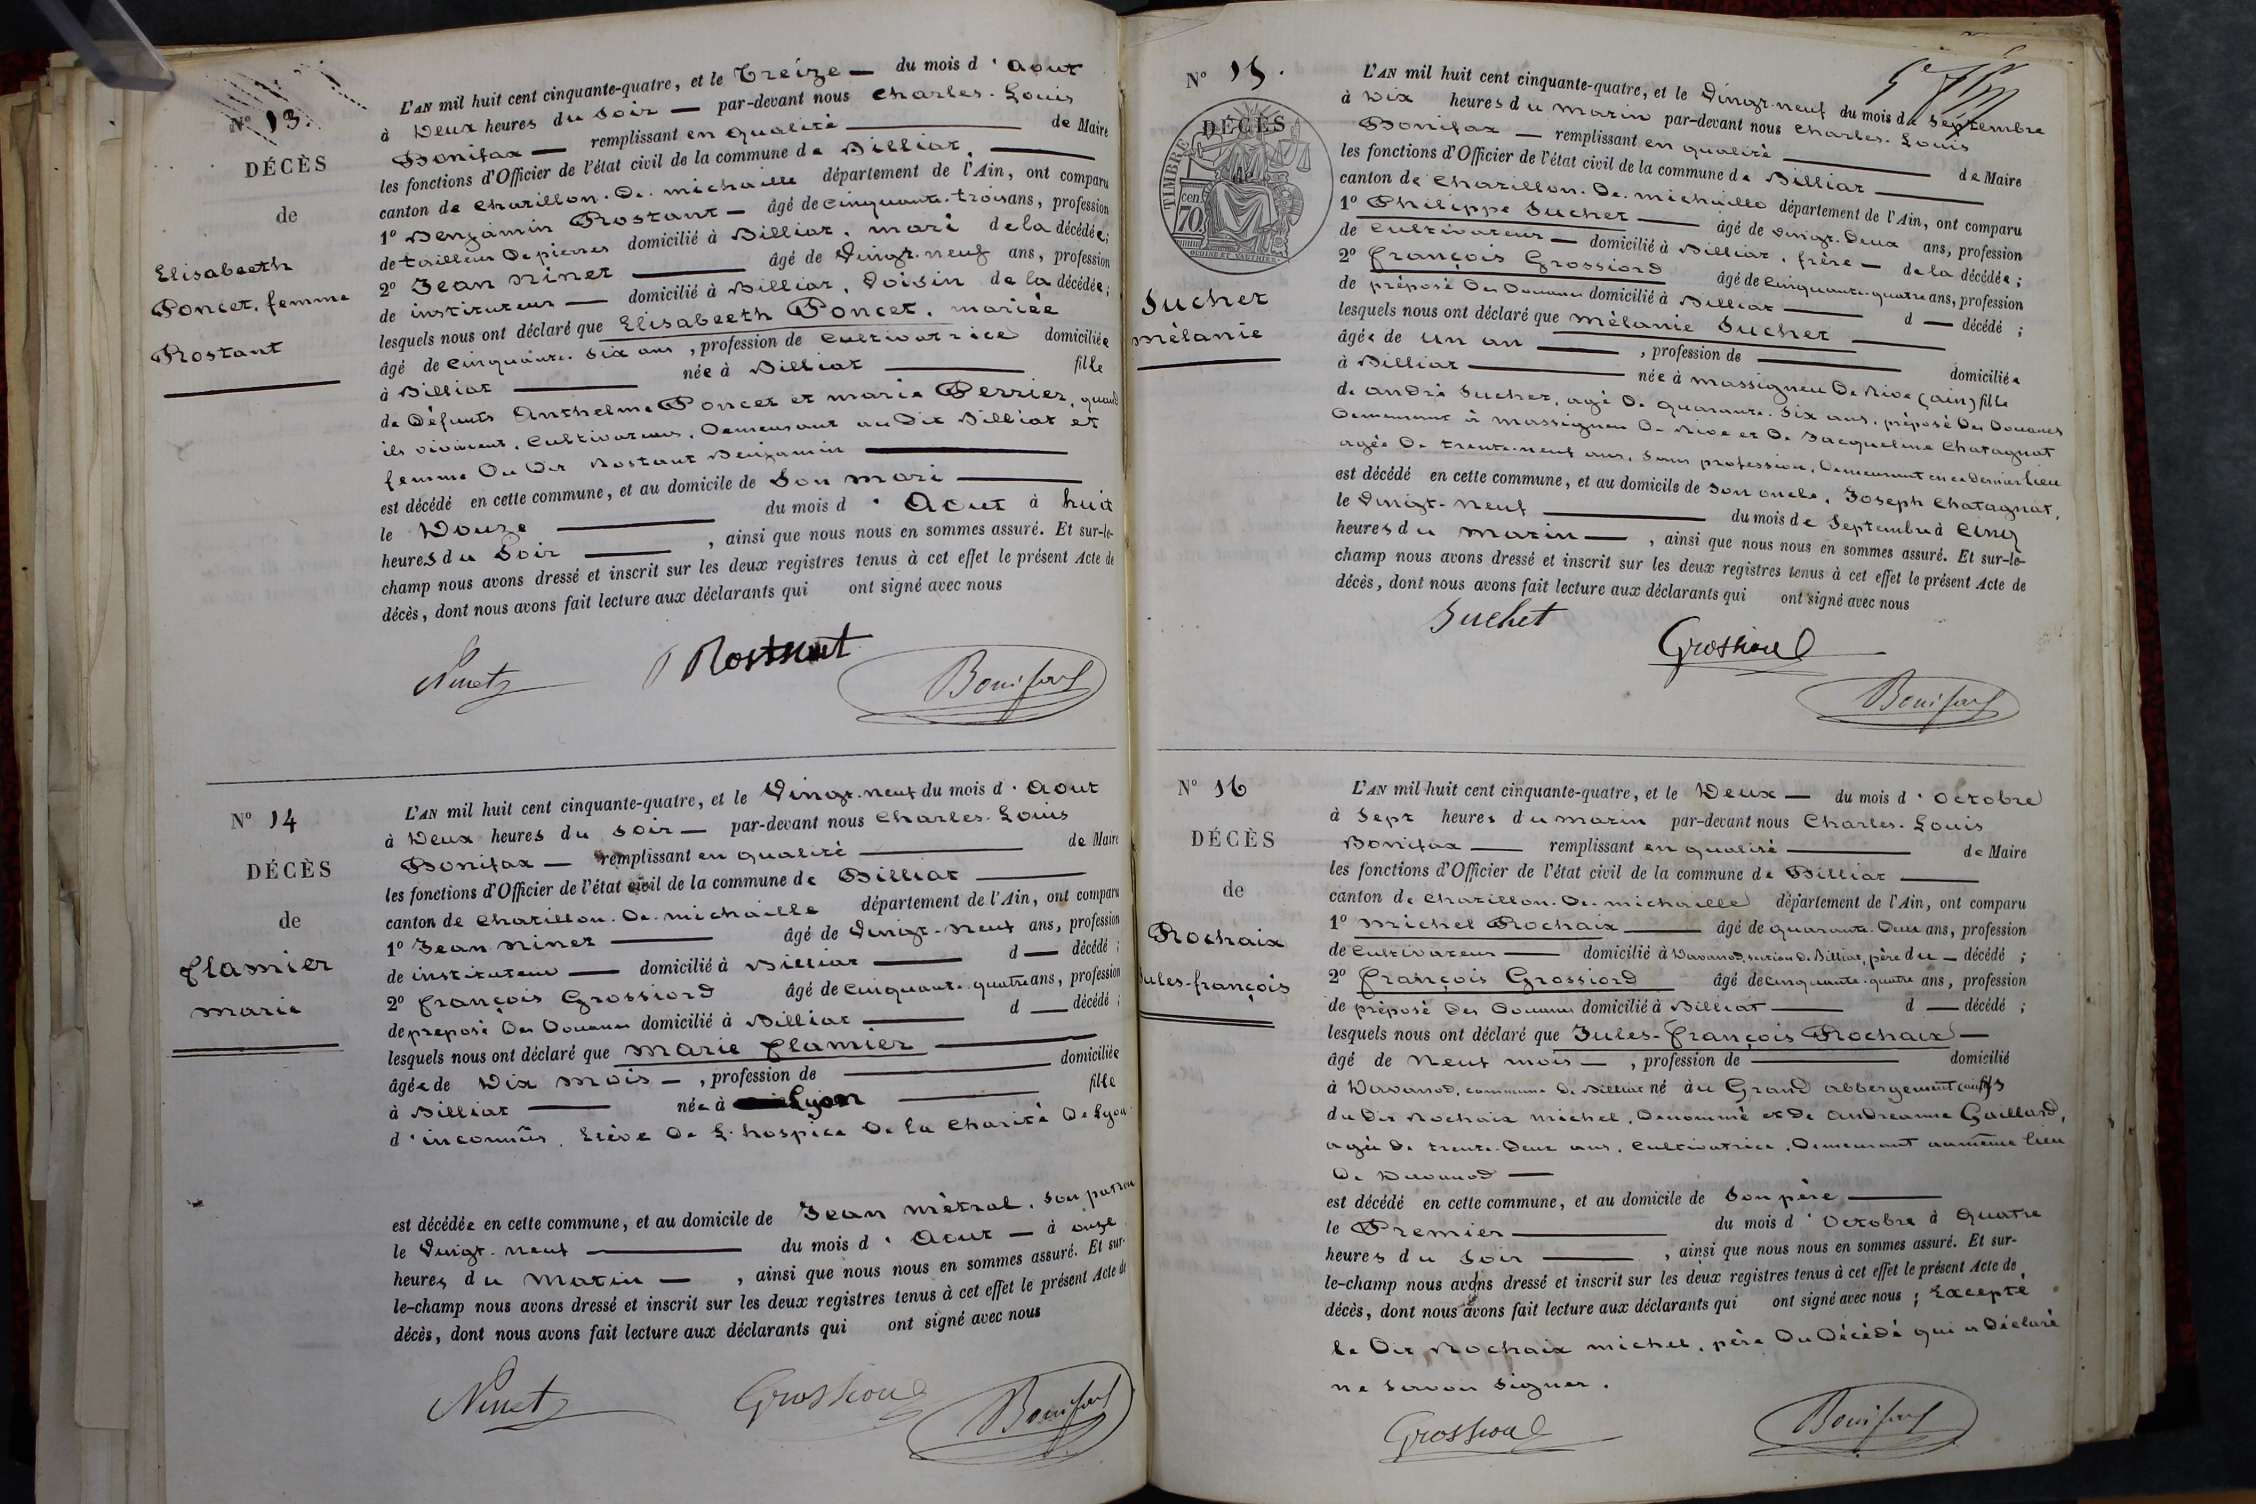 N° 13.
DÉCÈS
de
Elisabeeth
Poncet, femme
Rostant
L'AN mil huit cent cinquante-quatre, et le Treize — du mois d'Aout
à Deux heures du Soir — par-devant nous Charles-Louis
Bonifax — remplissant en qualité — de Maire
les fonctions d'Officier de l'état civil de la commune de Billiat, —
canton de Chatillon-De-michaille département de l'Ain, ont comparu
1° Benjamin Rostant — âgé de cinquante-trois ans, profession
de tailleur De pierres domicilié à Billiat, mari de la décédée;
2° Jean ninet — âgé de Vingt-neuf ans, profession
de instituteur — domicilié à Billiat, Voisin de la décédée;
lesquels nous ont déclaré que Elisabeeth Poncet, mariée
âgé de cinquante-six ans, profession de Cultivatrice domiciliée
à Billiat — née à Billiat — fille
de Défunts Anthelme Poncet et marie Perrier, quand
ils vivaient, Cultivateurs, Demeurant au Dit Billiat et
femme Du Dit Rostant Benjamin —
est décédé en cette commune, et au domicile de Son mari —
le Douze — du mois d'Aout à huit
heures du Soir —, ainsi que nous nous en sommes assuré. Et sur-le-
champ nous avons dressé et inscrit sur les deux registres tenus à cet effet le présent Acte de
décès, dont nous avons fait lecture aux déclarants qui ont signé avec nous
Ninet Rostant Bonifax
N° 14
DÉCÈS
de
flamier
marie
L'AN mil huit cent cinquante-quatre, et le Vingt-neuf du mois d'Aout
à Deux heures du soir — par-devant nous Charles-Louis
Bonifax — remplissant en qualité — de Maire
les fonctions d'Officier de l'état civil de la commune de Billiat —
canton de Chatillon-De-michaille département de l'Ain, ont comparu
1° Jean ninet — âgé de Vingt-neuf ans, profession
de instituteur — domicilié à Billiat — d — décédé;
2° françois Grossiord âgé de cinquante-quatre ans, profession
de préposé Des Douanes domicilié à Billiat — d — décédé;
lesquels nous ont déclaré que marie flamier —
âgée de Dix mois —, profession de — domiciliée
à Billiat — née à Lyon — fille
d'inconnus, Elève De L'hospice De la Charité De Lyon
est décédée en cette commune, et au domicile de Jean métral, son patron
le Vingt-neuf — du mois d'Aout — à onze
heures du Matin —, ainsi que nous nous en sommes assuré. Et sur-
le-champ nous avons dressé et inscrit sur les deux registres tenus à cet effet le présent Acte de
décès, dont nous avons fait lecture aux déclarants qui ont signé avec nous
Ninet Grossiord Bonifax
N° 15.
DÉCÈS
TIMBRE
70 cen
Suchet
mélanie
L'AN mil huit cent cinquante-quatre, et le Vingt-neuf du mois de Septembre
à Dix heures du matin par-devant nous Charles-Louis
Bonifax — remplissant en qualité — de Maire
les fonctions d'Officier de l'état civil de la commune de Billiat —
canton de Chatillon-De-michaille département de l'Ain, ont comparu
1° Philippe Suchet — âgé de vingt-Deux ans, profession
de Cultivateur — domicilié à Billiat, frère — de la décédée;
2° françois Grossiord âgé de cinquante-quatre ans, profession
de préposé Des Douanes domicilié à Billiat — d — décédé;
lesquels nous ont déclaré que mélanie Suchet —
âgée de un an —, profession de — domiciliée
à Billiat — née à massigneu De Rive (ain) fille
de andré Suchet, agé De quarante-Six ans, préposé Des Douanes
Demeurant à massigneu De Rive et De Jacqueline Chatagnat
agée De trente-neuf ans, Sans profession, Demeurant en ce dernier lieu
est décédé en cette commune, et au domicile de son oncle, Joseph Chatagnat,
le Vingt-neuf — du mois de Septembre à Cinq
heures du matin —, ainsi que nous nous en sommes assuré. Et sur-le-
champ nous avons dressé et inscrit sur les deux registres tenus à cet effet le présent Acte de
décès, dont nous avons fait lecture aux déclarants qui ont signé avec nous
Suchet Grossiord Bonifax
N° 16
DÉCÈS
de
Rochaix
Jules-françois
L'AN mil huit cent cinquante-quatre, et le Deux — du mois d'Octobre
à Sept heures du matin par-devant nous Charles-Louis
Bonifax — remplissant en qualité — de Maire
les fonctions d'Officier de l'état civil de la commune de Billiat —
canton de Chatillon-De-michaille département de l'Ain, ont comparu
1° michel Rochaix — âgé de quarante-Deux ans, profession
de Cultivateur — domicilié à Davanod, section De Billiat, père du — décédé;
2° françois Grossiord âgé de cinquante-quatre ans, profession
de préposé Des Douanes domicilié à Billiat — d — décédé;
lesquels nous ont déclaré que Jules-françois Rochaix —
âgé de neuf mois —, profession de — domicilié
à Davanod, commune De Billiat né au Grand abbergement (ain) fils
du Dit Rochaix michel, Dénommé et De andréanne Gaillard,
agée De trente-Deux ans, Cultivatrice, Demeurant au même lieu
De Davanod —
est décédé en cette commune, et au domicile de Son père —
le Premier — du mois d'Octobre à Quatre
heures du Soir —, ainsi que nous nous en sommes assuré. Et sur-
le-champ nous avons dressé et inscrit sur les deux registres tenus à cet effet le présent Acte de
décès, dont nous avons fait lecture aux déclarants qui ont signé avec nous; Excepté
le Dit Rochaix michel, père Du Décédé qui a Déclaré
ne Savoir Signer.
Grossiord Bonifax